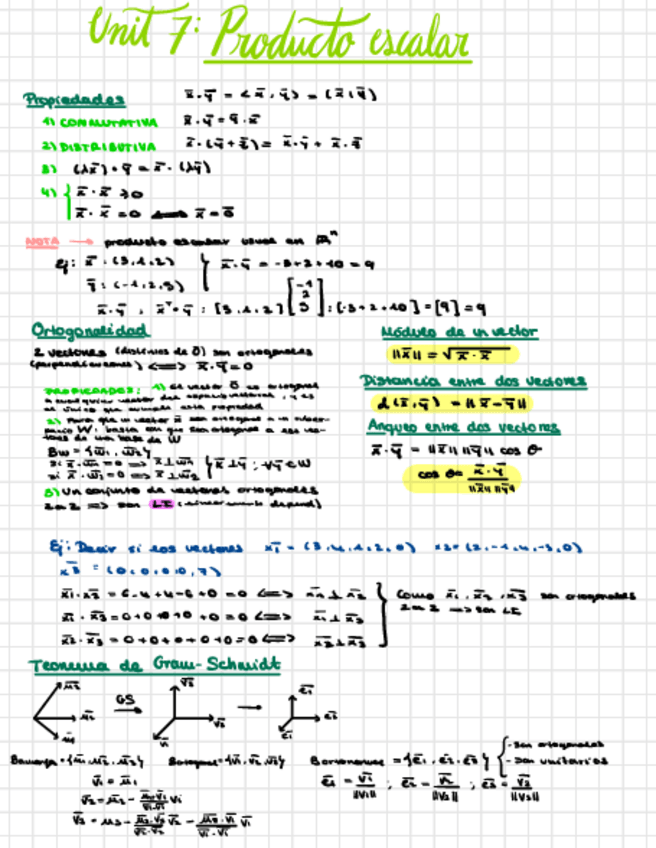 Unit 7: Producto escalar
Propiedades x̄·ȳ = <x̄,ȳ> = (x̄|ȳ)
1) CONMUTATIVA x̄·ȳ = ȳ·x̄
2) DISTRIBUTIVA x̄·(ȳ+z̄) = x̄·ȳ + x̄·z̄
3) (λx̄)·ȳ = x̄·(λȳ)
4) { x̄·x̄ ≥ 0
x̄·x̄ = 0 ⟺ x̄ = ō
NOTA → producto escalar usual en ℝⁿ
Ej: x̄: (3,1,2) } x̄·ȳ = -3+2+10 = 9
ȳ: (-1,2,5)
x̄·ȳ : x̄ᵀ·ȳ : [3,1,2] [-1 2 5] : [-3+2+10] = [9] = 9
Ortogonalidad
2 vectores (distintos de ō) son ortogonales
(perpendiculares) ⟺ x̄·ȳ = 0
PROPIEDADES: 1) el vector ō es ortogonal
a cualquier vector del espacio vectorial, y es
el único que cumple esta propiedad
2) Para que un vector x̄ sea ortogonal a un
W, basta con que sea ortogonal a los
de una base de W
Bw = {w̄1, w̄2}
si x̄·w̄1 = 0 ⟹ x̄⊥w̄1 } x̄⊥ȳ ; ∀ȳ∈W
si x̄·w̄2 = 0 ⟹ x̄⊥w̄2
3) Un conjunto de vectores ortogonales
2 a 2 ⟹ son LI
Módulo de un vector
||x̄|| = √x̄·x̄
Distancia entre dos vectores
d(x̄,ȳ) = ||x̄-ȳ||
Angulo entre dos vectores
x̄·ȳ = ||x̄|| ||ȳ|| cos θ
cos θ = x̄·ȳ / ||x̄|| ||ȳ||
Ej: Decir si los vectores x̄1 = (3,4,1,2,0) x̄2 = (2,-1,4,-3,0)
x̄3 = (0,0,0,0,7)
x̄1·x̄2 = 6-4+4-6+0 = 0 ⟺ x̄1⊥x̄2
x̄1·x̄3 = 0+0+0+0+0 = 0 ⟺ x̄1⊥x̄3
x̄2·x̄3 = 0+0+0+0+0 = 0 ⟺ x̄2⊥x̄3
Como x̄1, x̄2, x̄3 son ortogonales
2 a 2 ⟹ son LI
Teorema de Gram-Schmidt
ū3 ū2 ū1 GS v̄3 v̄2 v̄1 ē3 ē2 ē1
= {ū1, ū2, ū3} = {v̄1, v̄2, v̄3} = {ē1, ē2, ē3} { - son ortogonales
- son unitarios
v̄1 = ū1
v̄2 = ū2 - ū2·v̄1/v̄1·v̄1 v̄1
v̄3 = ū3 - ū3·v̄2/v̄2·v̄2 v̄2 - ū3·v̄1/v̄1·v̄1 v̄1
ē1 = v̄1/||v̄1|| ; ē2 = v̄2/||v̄2|| ; ē3 = v̄3/||v̄3||